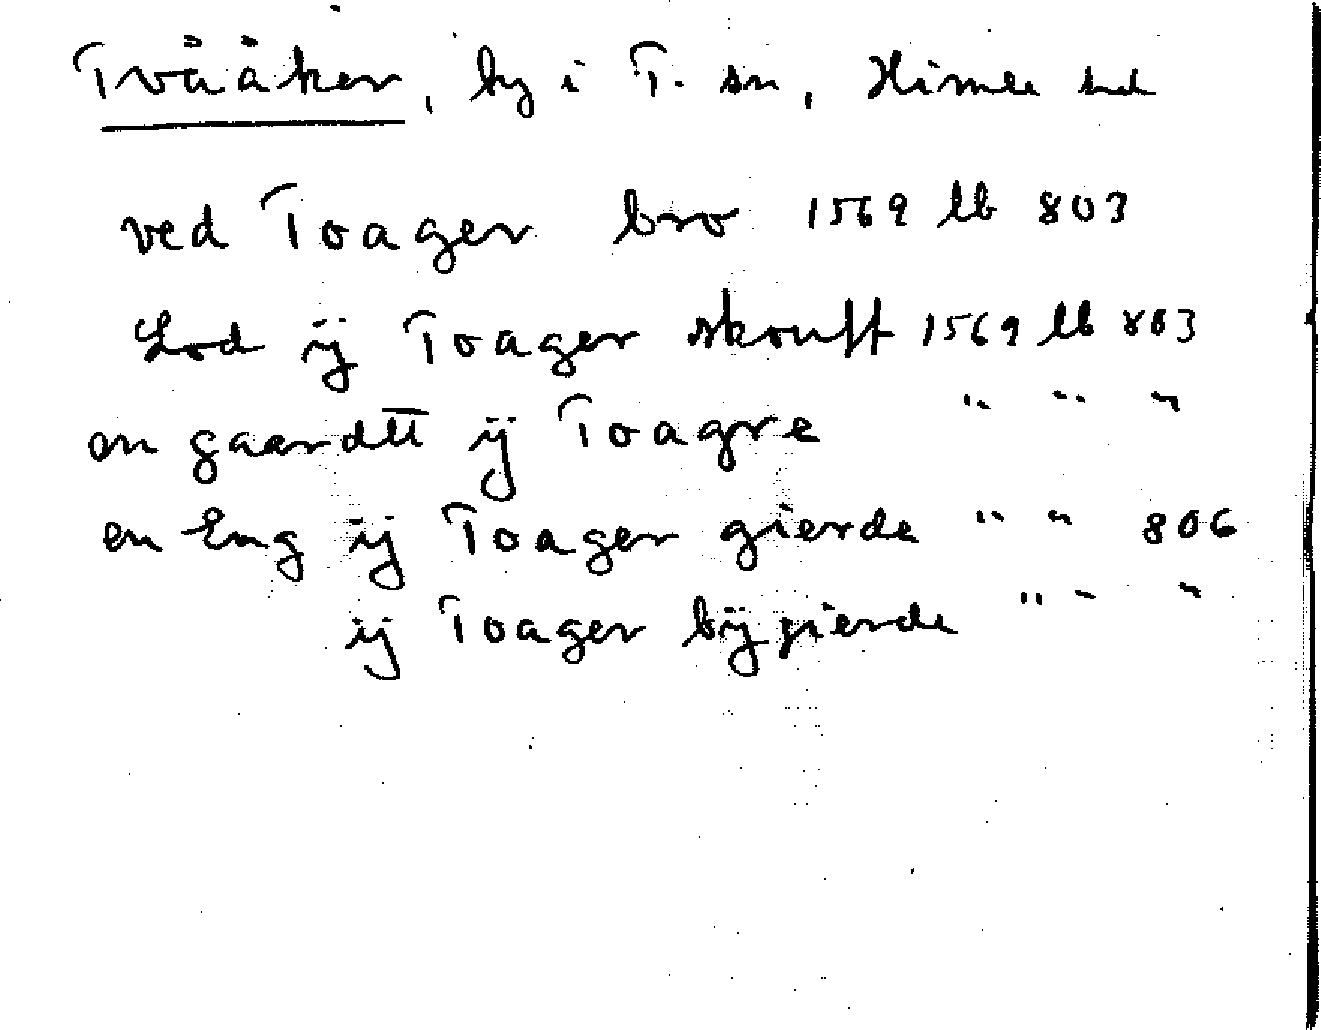 Tvååker, by i T. sn, Himle hd
ved Toager bro 1569 lb 803
Lod ij Toager skoufft 1569 lb 803
en gaardtt ij Toagre " " "
en Eng ij Toager gierde " " 806
ij Toager bÿgierde " " "